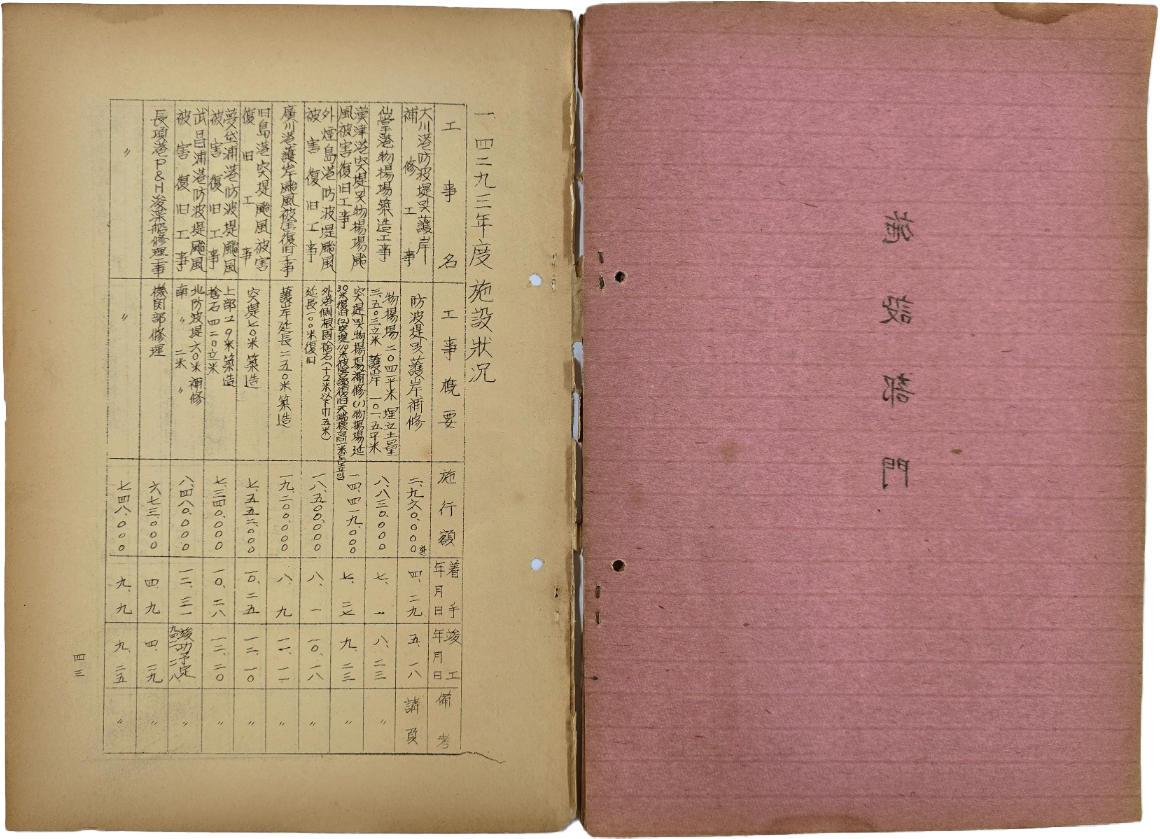 施設部門
一 四二九三年度 施設状况
工事名
工事概要
施行額
着手年月日
竣工年月日
備考
大川港防波堤및護岸補修工事
防波堤및護岸補修
二、九六〇、〇〇〇
四、二九
五、一八
請負
物揚場築造工事
物揚場二〇四平米 埋立土量
三、五〇三立米 護岸 一〇一五平米
八、八三〇、〇〇〇
七、一
八、二三
〃
注津港突堤및物揚場颱風被害復旧工事
突堤및物揚場補修
一四、四一九、〇〇〇
九、二三
〃
外煙島港防波堤颱風被害復旧工事
延長一〇〇米復旧
一八、五〇〇、〇〇〇
八、一
一〇、一八
〃
廣川港護岸颱風被害復旧工事
護岸延長二五〇米築造
一九、二〇〇、〇〇〇
八、九
一一、一一
〃
旧島港突堤颱風被害復旧工事
突堤七〇米築造
七、五五二、〇〇〇
一〇、二五
一二、一〇
〃
浦港防波堤颱風被害復旧工事
上部二九米築造
捨石四二〇立米
七、三四〇、〇〇〇
一〇、二八
一二、二〇
〃
武昌浦港防波堤颱風被害復旧工事
北防波堤六〇米補修
南 〃 二米 〃
八、四八〇、〇〇〇
一二、三一
竣功予定
〃
長項港P&H浚渫船修理工事
機関部修理
六七三、〇〇〇
四、九
四、二九
〃
〃
〃
七四八、〇〇〇
九、九
九、二五
〃
四三